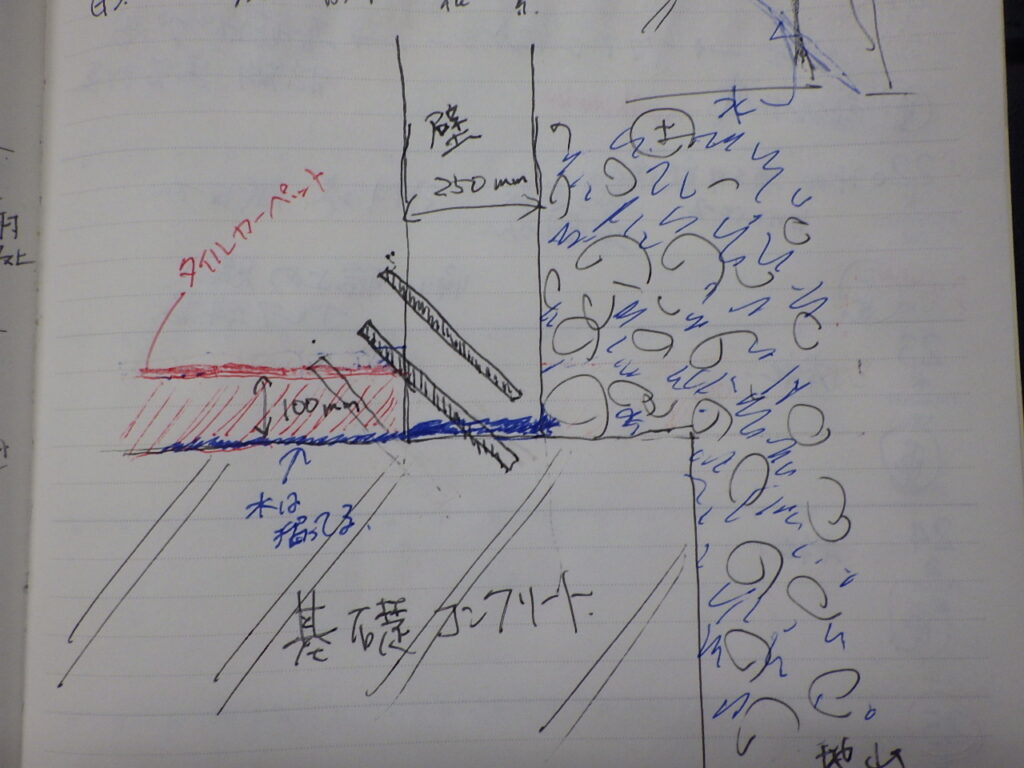 水
土
壁
250mm
タイルカーペット
100mm
水は
溜ってる.
基礎コンクリート.
地山